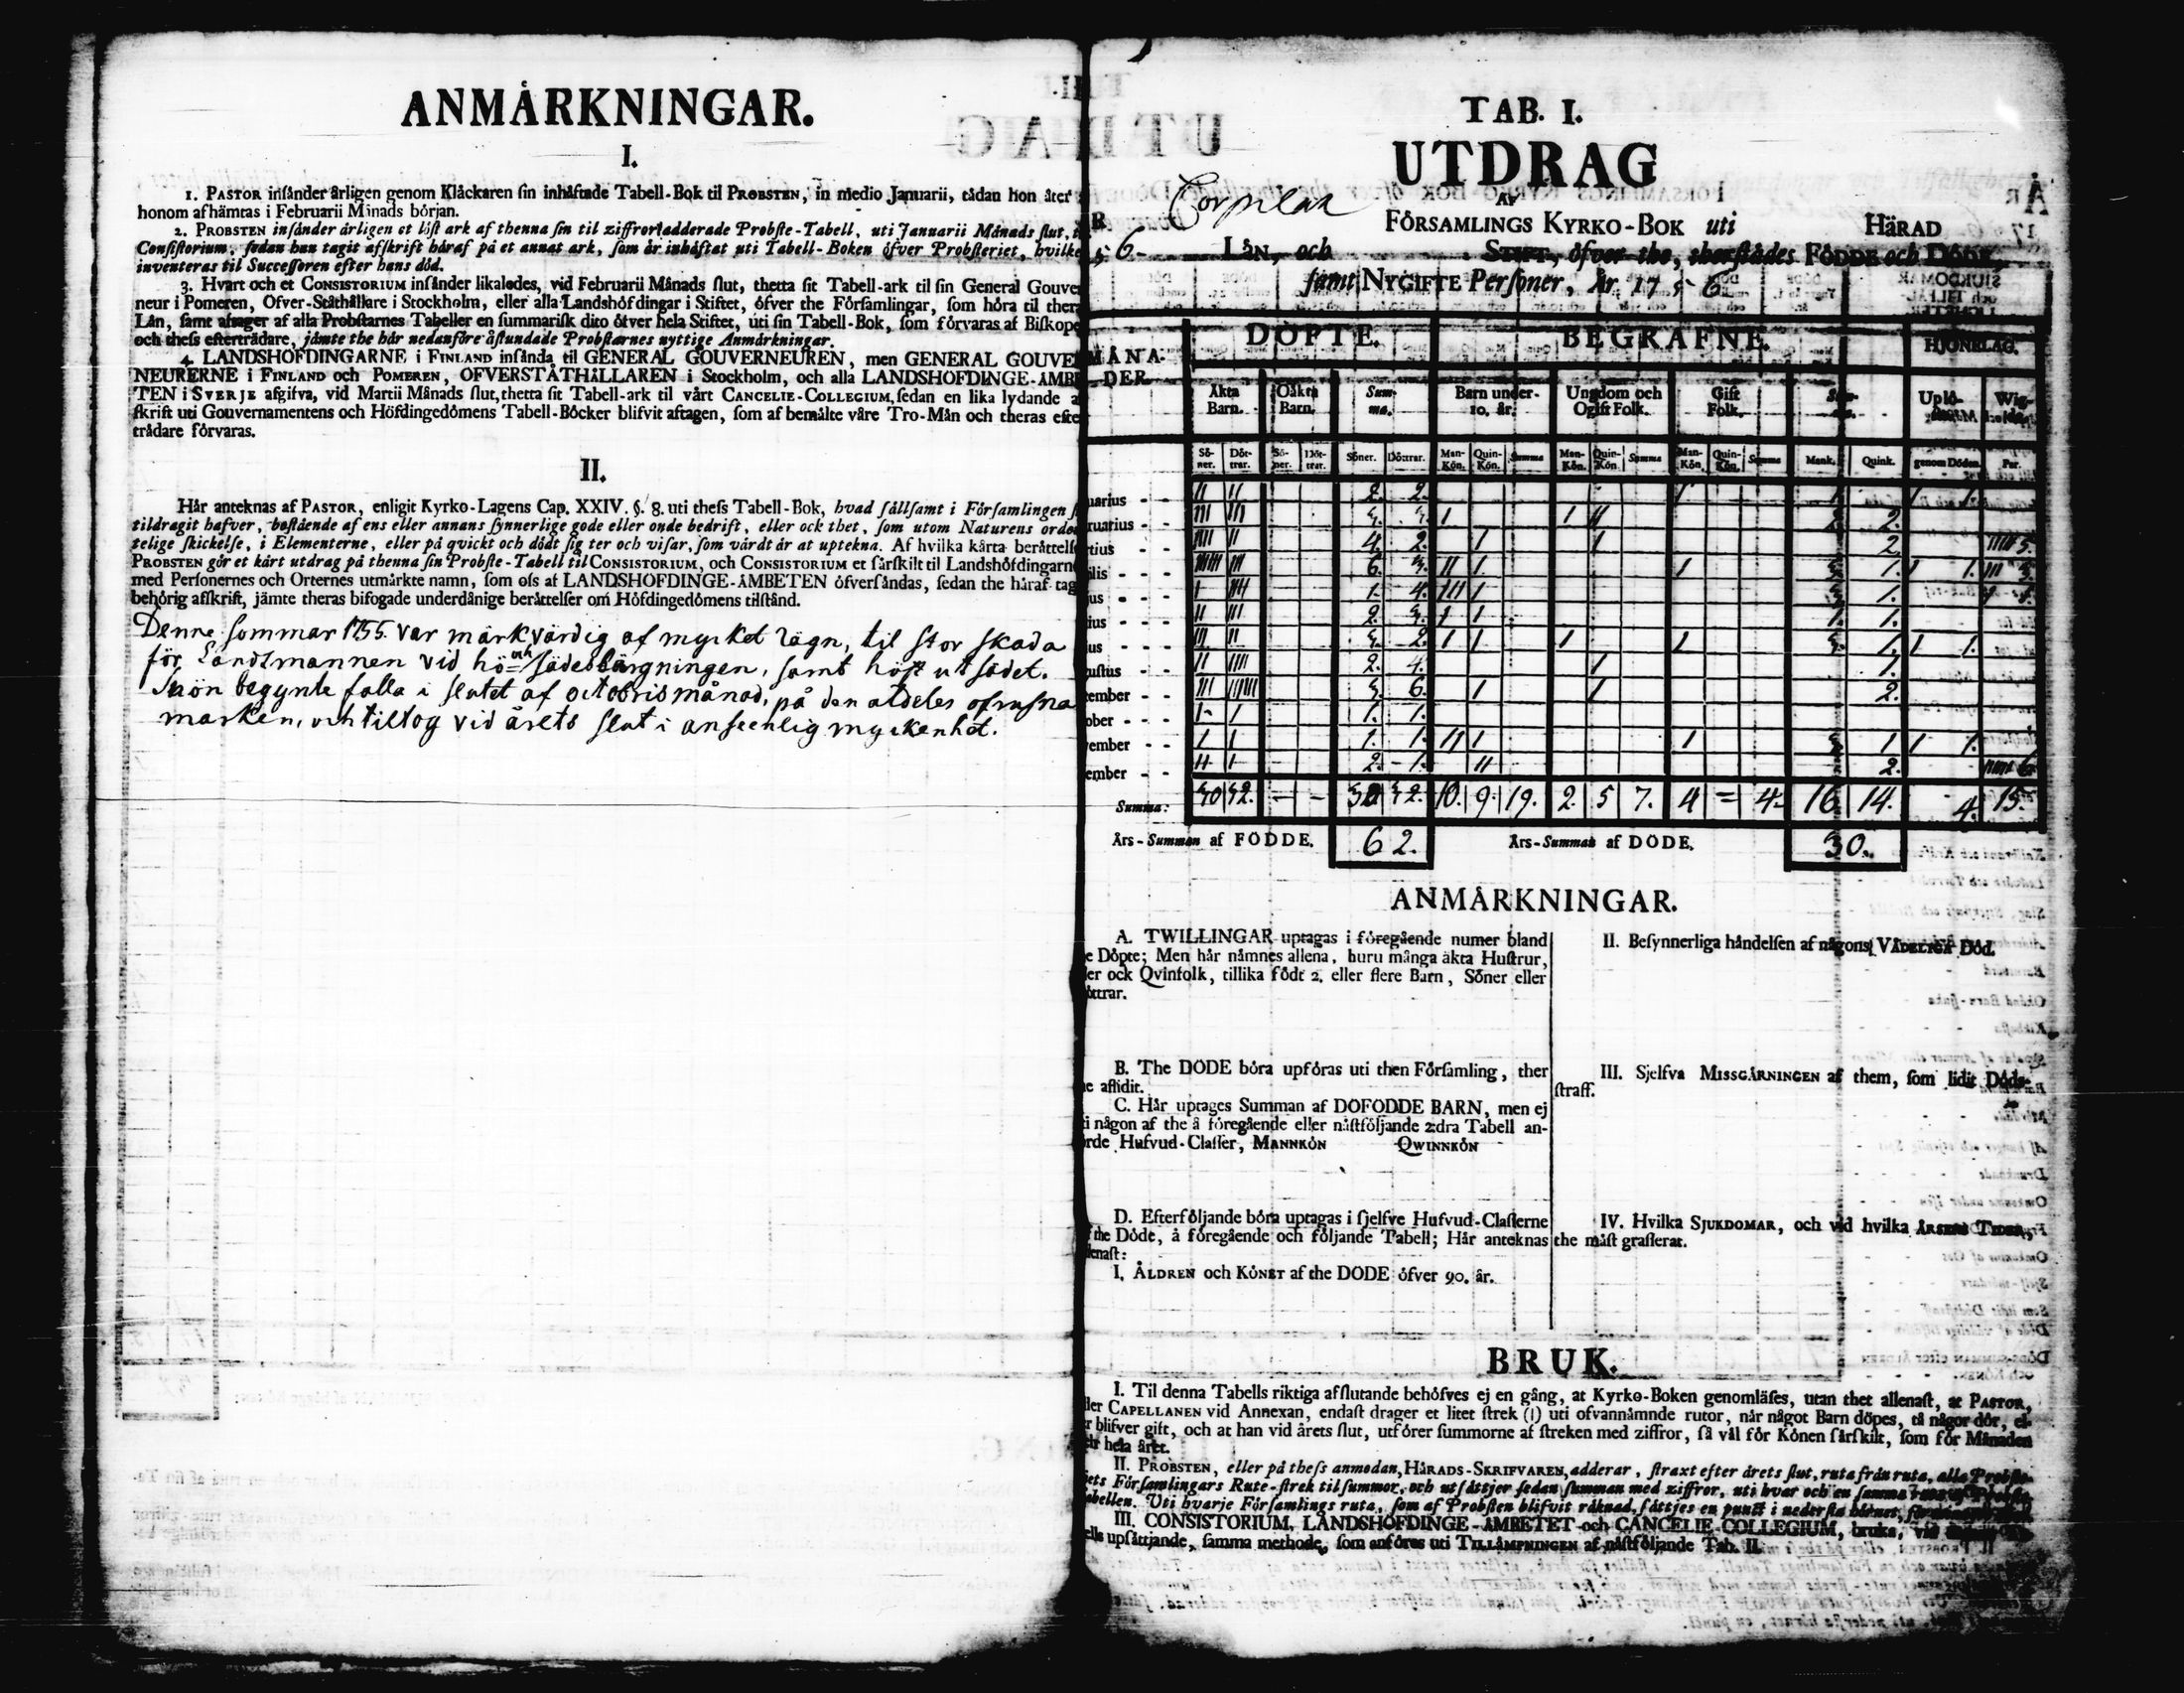 ANMÄRKNINGAR.
I.
1. PASTOR insänder årligen genom Klåckaren sin inhäftade Tabell-Bok til PROBSTEN, in medio Januarii, tådan hon åter
honom afhämtas i Februarii Månads början.
2. PROBSTEN insänder årligen et löst ark af thenna sin til ziffror adderade Probste-Tabell, uti Januarii Månads slut,
Consistorium, sedan han tagit afskrift håraf på et annat ark, som är inhäftat uti Tabell-Boken öfver Probsteriet, hvilke
inventeras til Successoren efter hans död.
3. Hvart och et CONSISTORIUM insänder likaledes, vid Februarii Månads slut, thetta sit Tabell-ark til sin General Gouve
neur i Pomeren, Öfver-Ståthållare i Stockholm, eller alla Landshöfdingar i Stiftet, öfver the Församlingar, som höra til ther
Län, samt aftager af alla Probstarnes Tabeller en summarisk dito öfver hela Stiftet, uti sin Tabell-Bok, som förvaras af Biskope
och thess efterträdare, jämte the här nedanföre åstundade Probstarnes nyttige Anmärkningar.
4. LANDSHÖFDINGARNE i FINLAND insända til GENERAL GOUVERNEUREN, men GENERAL GOUVE
NEURERNE i FINLAND och POMEREN, ÖFVERSTÅTHÅLLAREN i Stockholm, och alla LANDSHÖFDINGE-ÄMB
TEN i SVERJE afgifva, vid Martii Månads slut, thetta sit Tabell-ark til vårt CANCELIE-COLLEGIUM, sedan en lika lydande a
skrift uti Gouvernamentens och Höfdingedömens Tabell-Böcker blifvit aftagen, som af bemälte våre Tro-Män och theras efte
trädare förvaras.
II.
Här anteknas af PASTOR, enligit Kyrko-Lagens Cap. XXIV. §. 8. uti thess Tabell-Bok, hvad sällsamt i Församlingen
tildragit hafver, bestående af ens eller annans synnerlige gode eller onde bedrift, eller ock thet, som utom Naturens orde
telige skickelse, i Elementerne, eller på qvickt och dödt sig ter och visar, som värdt är at uptekna. Af hvilka kårta berättels
PROBSTEN gör et kårt utdrag på thenna sin Probste-Tabell til CONSISTORIUM, och CONSISTORIUM et särskilt til Landshöfdingarn
med Personernes och Orternes utmärkte namn, som oss af LANDSHÖFDINGE-ÄMBETEN öfversändas, sedan the häraf tag
behörig afskrift, jämte theras bifogade underdånige berättelser om Höfdingedömens tilstånd.
Denne sommar 1755. var märkvärdig af myckct rägn, til stor skada
för Landtmannen vid hö= och sädesbärgningen, samt höst utsädet.
Snön begynte falla i slutet af octobris månad, på den aldeles ofrusna
marken, och tiltog vid årets slut i anseenlig myckenhet.
TAB. I.
UTDRAG
AF
Corpilax
FÖRSAMLINGS KYRKO-BOK uti HÄRAD
56. LÄN, och STIFT, öfver the, therstädes FÖDDE och DÖDE,
samt NYGIFTE Personer, År 1756
MÅNA-DER DÖPTE. BEGRAFNE. HJONELAG.
Äkta Barn. Oäkta Barn. Summa. Barn under 10. år. Ungdom och Ogift Folk. Gift Folk. Summa. Uplö- Wig-
Sö-ner. Döt-trar. Sö-ner. Döt-trar. Söner. Döttrar. Man-Kön. Quin-Kön. Summa Man-Kön. Quin-Kön. Summa Man-Kön. Quin-Kön. Summa Mank. Quink. genom Döden. Par.
uarius - - II II 2. 2. I 1. I 1.
ruarius - - III III 3. 3. I I II 2. 2.
rtius - - IIII II 4. 2. I I 2 IIIII 5.
ilis - - - IIIIII III 6. 3. II I I 3. 1. I 1. III 3.
jus - - - I IIII 1. 4. III I 3. 1. I 1.
ius - - - II III 2. 3. I I 1. 1.
us - - - III II 3. 2. I I I I 3. 1. I 1.
ustus - - II IIII 2. 4. I 1.
tember - - III IIIIII 3. 6. I I 2.
ober - - - I I 1. 1.
vember - - I I 1. 1. II I I 3. 1 I 1.
ember - - II I 2. 1. II 2. IIIIII 6.
Summa: 30 32. - - 30 32. 10. 9. 19. 2. 5 7. 4 = 4. 16 14. 4. 15.
Års-Summan af FÖDDE. 62. Års-Summan af DÖDE. 30.
ANMÄRKNINGAR.
A. TWILLINGAR uptagas i föregående numer bland
e Döpte; Men här nämnes allena, huru många äkta Hustrur,
er ock Qvinfolk, tillika födt 2. eller flere Barn, Söner eller
öttrar.
B. The DÖDE böra upföras uti then Församling, ther
e aflidit.
C. Här uptages Summan af DÖFÖDDE BARN, men ej
i någon af the å föregående eller nästföljande 2:dra Tabell an-
rde Hufvud-Classer, MANNKÖN QWINNKÖN
D. Efterföljande böra uptagas i sjelfve Hufvud-Classerne
the Döde, å föregående och följande Tabell; Här anteknas
lenast:
I. ÅLDREN och KÖNET af the DÖDE öfver 90. år.
II. Besynnerliga händelsen af någons VÅDELIGA Död.
III. Sjelfva MISSGÄRNINGEN af them, som lidit Döds-
straff.
IV. Hvilka SJUKDOMAR, och vid hvilka ÅRSENS TIDER,
the mäst grasserat.
BRUK.
I. Til denna Tabells riktiga afslutande behöfves ej en gång, at Kyrko-Boken genomläses, utan thet allenast, at PASTOR,
ller CAPELLANEN vid Annexan, endast drager et litet strek (I) uti ofvannämnde rutor, når något Barn döpes, tå någor dör, el-
r blifver gift, och at han vid årets slut, utförer summorne af streken med ziffror, så väl för Könen särskilt, som för Månaden
hela året.
II. PROBSTEN, eller på thess anmodan, HÄRADS-SKRIFVAREN, adderar, straxt efter årets slut, ruta från ruta, alla Probste-
jets Församlingars Rute-strek til summor, och utsättjer sedan summan med ziffror, uti hvar och en
abellen. Uti hvarje Församlings ruta, som af Probsten blifvit räknad, sättjes en punct i nedersta hörnet,
III. CONSISTORIUM, LANDSHÖFDINGE-ÄMBETET och CANCELIE-COLLEGIUM, bruka, vid
ells upsättjande, samma methode, som anföres uti TILLÄMPNINGEN af nästföljande Tab. II.